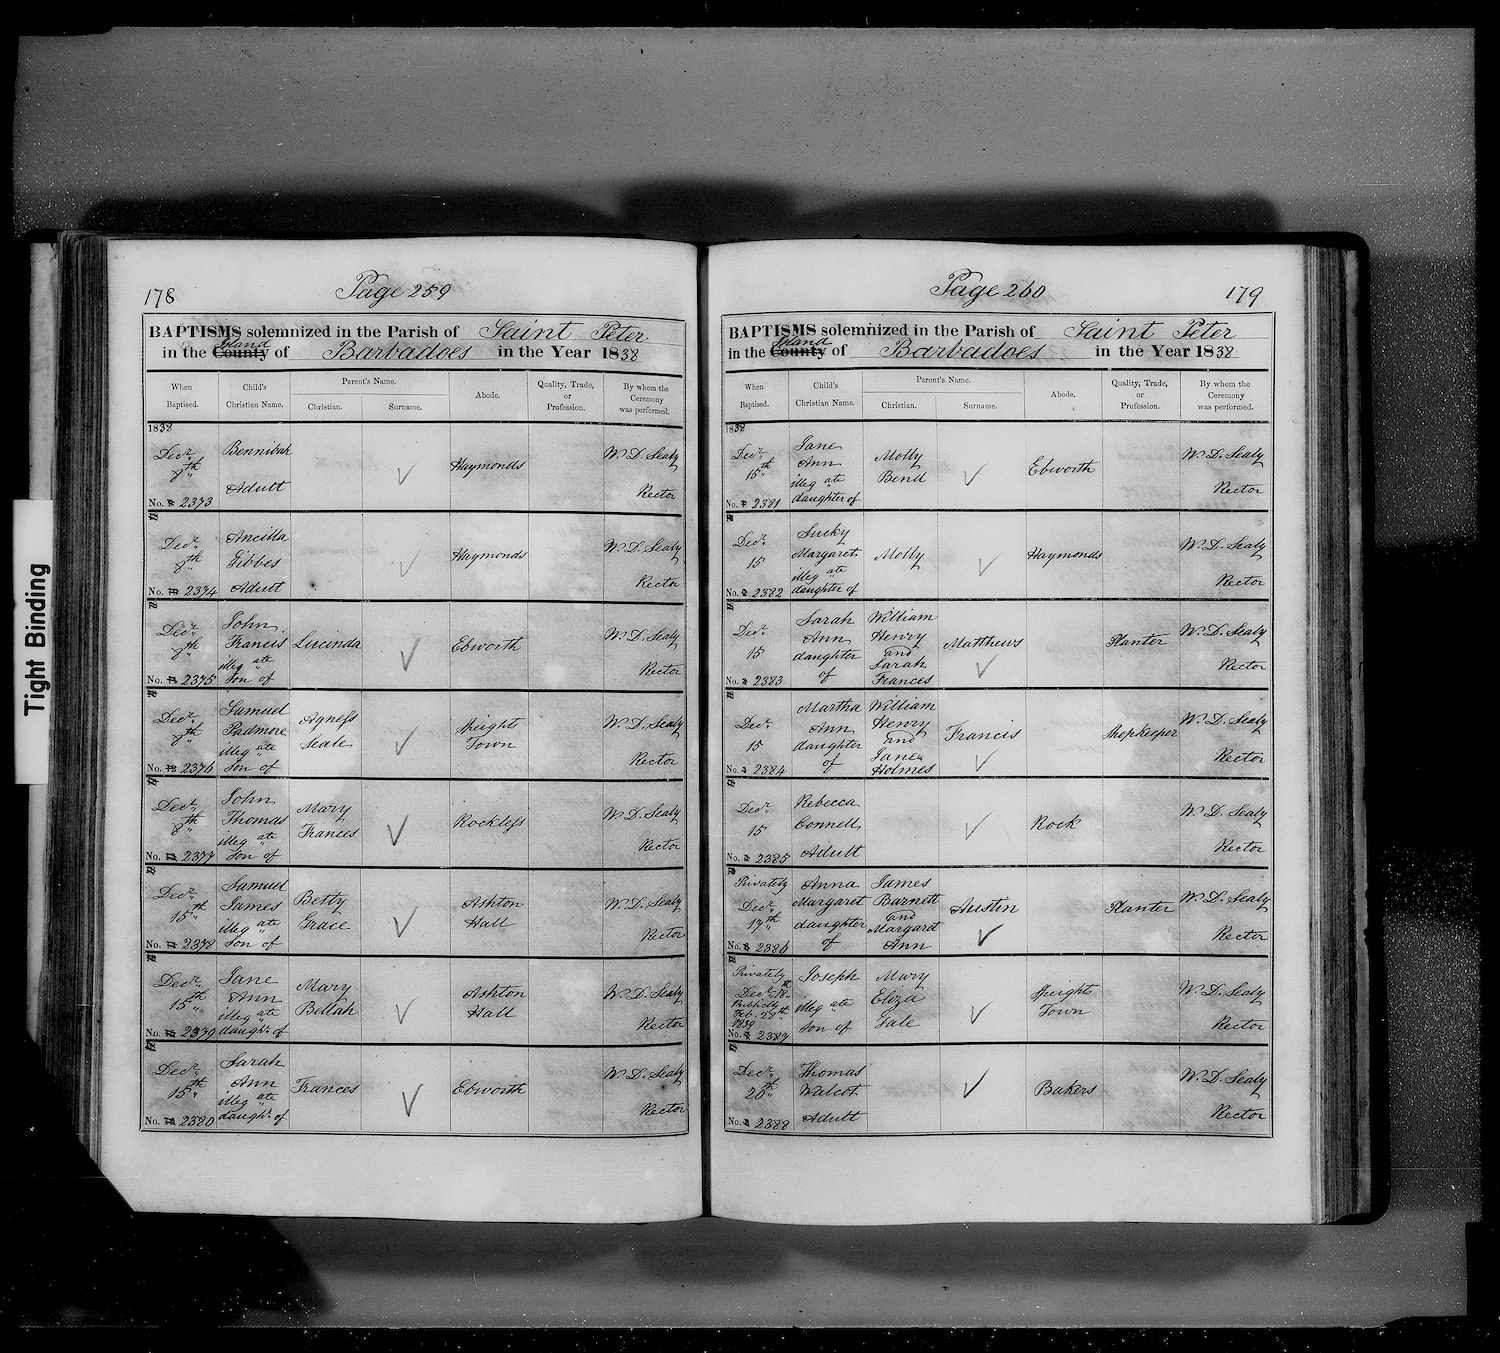 Tight Binding
178
Page 259
BAPTISMS solemnized in the Parish of Saint Peter
Island
in the County of Barbadoes in the Year 1838
When Baptised.
Child's Christian Name.
Parent's Name.
Christian.
Surname.
Abode.
Quality, Trade, or Profession.
By whom the Ceremony was performed.
1838
Decr. 8th
Bennibah
Adult
Haymonds
W. D. Sealy
Rector
No. 2373
Decr. 8th
Ancilla
Gibbes
Adult
Haymonds
W. D. Sealy
Rector
No. 2374
Decr. 8th
John
Francis
illeg ate
Son of
Lucinda
Ebworth
W. D. Sealy
Rector
No. 2375
Decr. 8th
Samuel
Padmore
illeg ate
Son of
Agness
Seale
Speight
Town
W. D. Sealy
Rector
No. 2376
Decr. 8th
John
Thomas
illeg ate
Son of
Mary
Frances
Rockless
W. D. Sealy
Rector
No. 2377
Decr. 15th
Samuel
James
illeg ate
Son of
Betty
Grace
Ashton
Hall
W. D. Sealy
Rector
No. 2378
Decr. 15th
Jane
Ann
illeg ate
daughr. of
Mary
Bellah
Ashton
Hall
W. D. Sealy
Rector
No. 2379
Decr. 15th
Sarah
Ann
illeg ate
daughr. of
Frances
Ebworth
W. D. Sealy
Rector
No. 2380
Page 260
179
BAPTISMS solemnized in the Parish of Saint Peter
Island
in the County of Barbadoes in the Year 1838
When Baptised.
Child's Christian Name.
Parent's Name.
Christian.
Surname.
Abode.
Quality, Trade, or Profession.
By whom the Ceremony was performed.
1838
Decr. 15th
Jane
Ann
illeg ate
daughter of
Molly
Bend
Ebworth
W. D. Sealy
Rector
No. 2381
Decr. 15
Sucky
Margaret
illeg ate
daughter of
Molly
Haymonds
W. D. Sealy
Rector
No. 2382
Decr. 15
Sarah
Ann
daughter
of
William
Henry
and
Sarah
Frances
Matthews
Planter
W. D. Sealy
Rector
No. 2383
Decr. 15
Martha
Ann
daughter
of
William
Henry
and
Jane
Holmes
Francis
Shopkeeper
W. D. Sealy
Rector
No. 2384
Decr. 15
Rebecca
Connell
Adult
Rock
W. D. Sealy
Rector
No. 2385
Privately
Decr. 17th
Anna
Margaret
daughter
of
James
Barnett
and
Margaret
Ann
Austin
Planter
W. D. Sealy
Rector
No. 2386
Privately
Decr. 18th
Publickly
Feb. 28th
1839
Joseph
illeg ate
Son of
Mary
Eliza
Gale
Speight
Town
W. D. Sealy
Rector
No. 2387
Decr. 26th
Thomas
Walcot
Adult
Bakers
W. D. Sealy
Rector
No. 2388